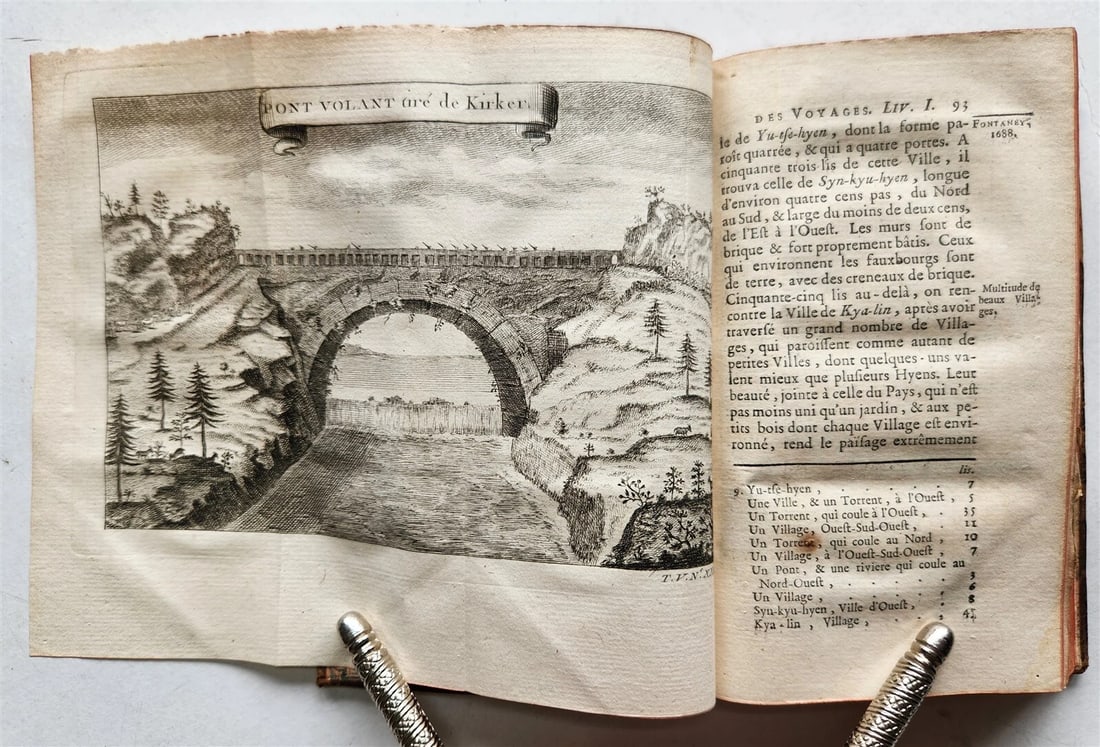 PONT VOLANT tiré de Kirker.
T. V. N.º X
DES VOYAGES. LIV. I. 93
le de Yu-tse-hyen, dont la forme pa-
roît quarrée, & qui a quatre portes. A
cinquante trois lis de cette Ville, il
trouva celle de Syn-kyu-hyen, longue
d'environ quatre cens pas, du Nord
au Sud, & large du moins de deux cens,
de l'Est à l'Ouest. Les murs sont de
brique & fort proprement bâtis. Ceux
qui environnent les fauxbourgs sont
de terre, avec des creneaux de brique.
Cinquante-cinq lis au-delà, on ren-
contre la Ville de Kya-lin, après avoir
traversé un grand nombre de Villa-
ges, qui paroissent comme autant de
petites Villes, dont quelques-uns va-
lent mieux que plusieurs Hyens. Leur
beauté, jointe à celle du Pays, qui n'est
pas moins uni qu'un jardin, & aux pe-
tits bois dont chaque Village est envi-
ronné, rend le païsage extrêmement
FONTANEY,
1688.
Multitude de
beaux Villa-
ges.
lis.
9. Yu-tse-hyen, 7
Une Ville, & un Torrent, à l'Ouest, 5
Un Torrent, qui coule à l'Ouest, . 35
Un Village, Ouest-Sud-Ouest, . 11
Un Torrent, qui coule au Nord, 10
Un Village, à l'Ouest-Sud-Ouest, 7
Un Pont, & une riviere qui coule au
Nord-Ouest, . . . . . . 3
Un Village, . . . . . . 6
Syn-kyu-hyen, Ville d'Ouest, . 8
Kya-lin, Village, . . . 45